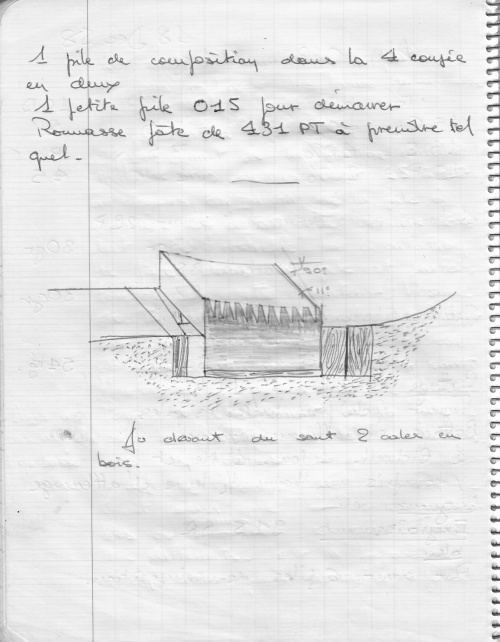 1 pile de composition dans la 4 coupée
en deux
1 petite pile 015 pour démarrer
Ramasse pâte de 431 PT à prendre tel
quel.
20°
11°
devant du saut 2 cales en
bois.